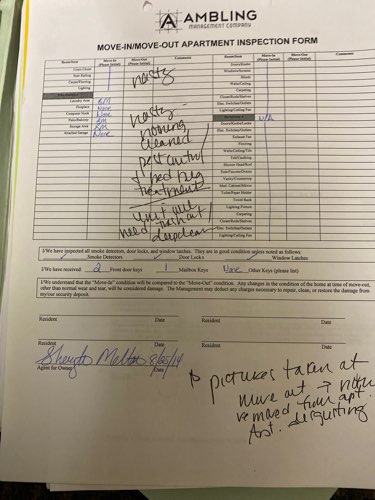 AMBLING
MANAGEMENT COMPANY
MOVE-IN/MOVE-OUT APARTMENT INSPECTION FORM
Room/Item Move-In (Please Initial) Move-Out (Please Initial) Comments Room/Item Move-In (Please Initial) Move-Out (Please Initial) Comments
Linen Closet Doors/Knobs
Stair Railing Windows/Screens
Carpet/Flooring nasty Blinds
Lighting Walls/Ceiling
Carpeting
Laundry Area RM Closet/Rods/Shelves
Fireplace None nasty - Elec. Switches/Outlets
Computer Nook None Lighting/Ceiling Fan
Patio/Balcony RM nothing N/A
Storage Area RM cleaned Doors/Knobs/Locks
Attached Garage None Elec. Switches/Outlets
pest control Exhaust Fan
& bed bug Flooring
treatment Walls/Ceiling/Tile
Tub/Caulking
unit will Shower Head/Rod
need trash out Sink/Faucets/Drains
deepclean Vanity/Countertop
Med. Cabinet/Mirror
Toilet/Paper Holder
Towel Rack
Lighting Fixture
Carpeting
Closet/Rods/Shelves
Elec. Switches/Outlets
Lighting/Ceiling Fan
I/We have inspected all smoke detectors, door locks, and window latches. They are in good condition unless noted as follows:
Smoke Detectors Door Locks Window Latches
I/We have received 2 Front door keys 1 Mailbox Keys None Other Keys (please list)
I/We understand that the "Move-In" condition will be compared to the "Move-Out" condition. Any changes in the condition of the home at time of move-out, other than normal wear and tear, will be considered damage. The Management may deduct any charges necessary to repair, clean, or restore the damage from my/our security deposit.
Resident Date Resident Date
Resident Date Resident Date
8/25/14
Agent for Owner Date
pictures taken at
move out → nothing
removed from apt.
Apt. disgusting